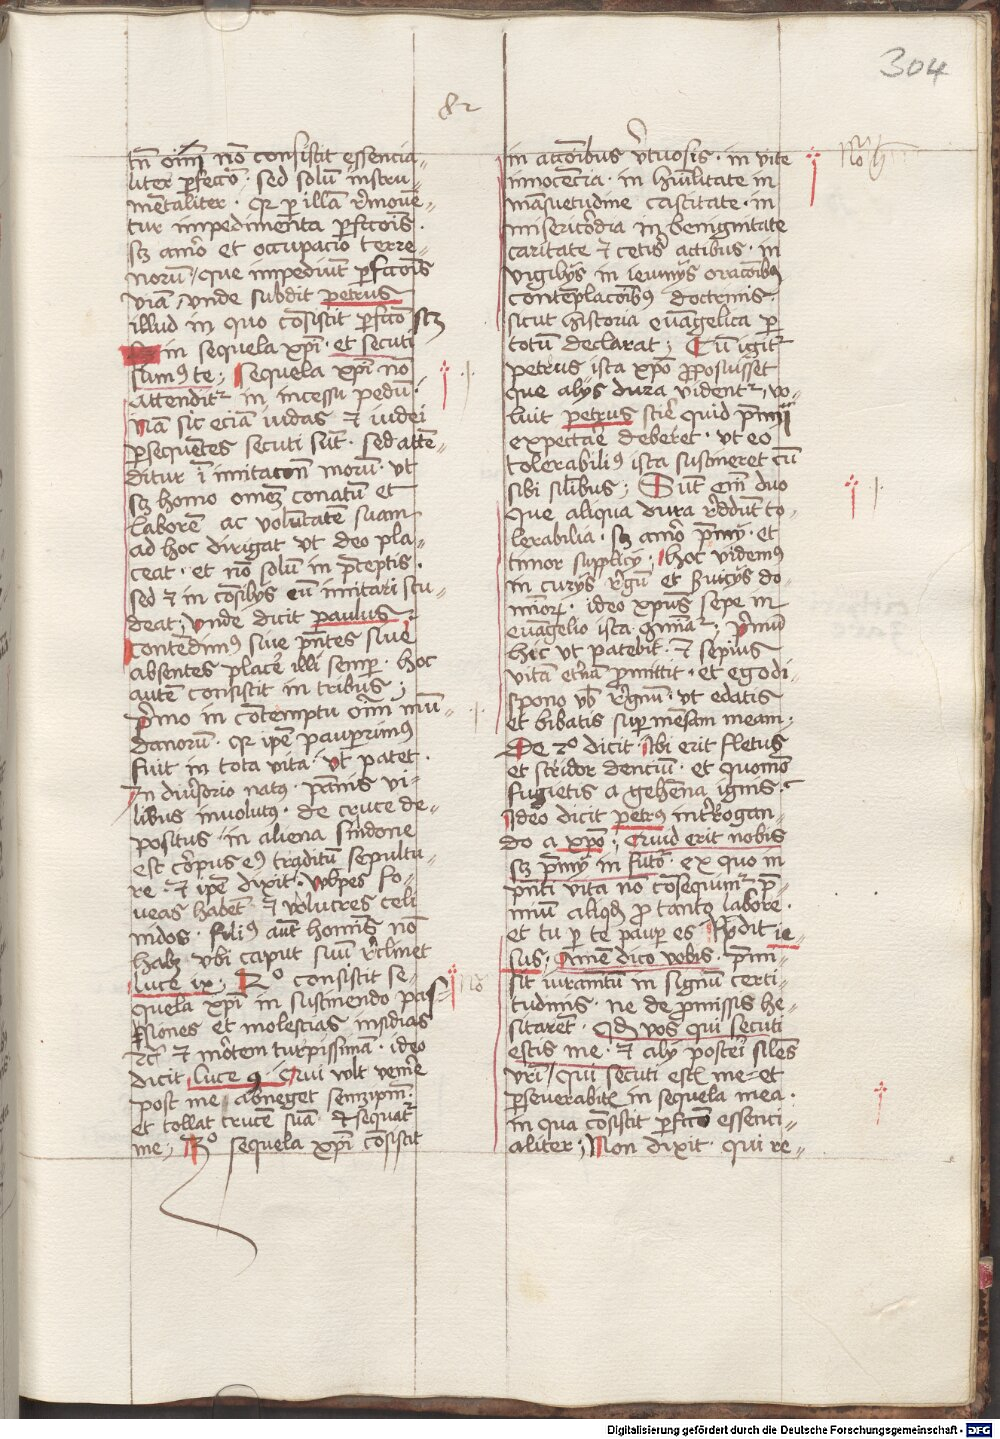 304
82
tn̄ oīm nō consistit essencia-
liter ꝑfecco᷑ · sed solū instru-
mētaliter · qꝛ ꝑ illā r̓moue-
tur impedimēta ꝑfccōis ·
sꝫ amor̓ et occupacio terre-
norū / que impediūt ꝑfccōīs
viā / vnde subdit petrus
illud in quo cōsistit ꝑfccō scꝫ
in sequela xp̄i · et secuti
sumꝰ te ; Sequela xp̄i nō
attenditᷣ in incessu pedū ·
nā sic eciā iudas et iudei
ꝑsequētes secuti sūt · sed attē-
ditur ī imitacōn morū · vt
sꝫ homo omēꝫ conatū et
laborē ac volūtatē suam
ad hoc dirigat vt deo pla-
ceat · et nō solū in p̄ceptis ·
sed et in cōsilijs eū imitari stu-
deat ; vnde dicit paulus ·
contēdimꝰ siue p̄ntes siue
absentes placē illi semꝑ · hoc
autē consistit in tribus ;
p̓mo in cōtemptu oīm mū-
danorū · qꝛ ip̄e pauꝑrimꝰ
fuit in tota vita · vt patet ·
In diu̓sorio natꝰ · pānis vi-
libus inuolutꝰ · de cruce de-
positus · in aliena sindone
est cōrpus eꝰ traditū sepultu-
re · et ip̄e dixit · vulpes fo-
ueas habēt et volucres celi
nidos · filiꝰ aūt hominis nō
habꝫ vbi caput suū r̓clinet
luce ix ; 2º consistit se-
quela xp̄i in sustinendo pas-
siones et molestias insidias
et mōrtem turpissimā · ideo
dicit luce 9 · Qui vult venīre
post me abneget semꝫip̄m ·
et tollat crucē suā · et sequatᷣ
me ; 3º sequela xp̄i cōsistit
in accōibus v̓tuosis · in vite
innocēcia · in hūilitate in
māsuetudine castitate · in
misericōrdia in benignitate
caritate et cetīs actibus · in
vigilijs in ieiunijs oracōibꝰ
contēplacōibꝰ doctrinis ·
sicut historia euāgelica ꝑ
totū declarat ; Cū igitᷣ
petrus ista xp̄o ꝓposuisset
que alijs dura vidētᷣ , vo-
luit petrus scīre quid p̄mij
expectāre deberet · vt eo
tolerabiliꝰ ista sustineret cū
sibi sīlibus ; Sūt em̄ duo
que aliqua dura r̓ddūt to-
lerabilia · sꝫ amōr p̄mij · et
timor supplicij ; hoc videmꝰ
in curijs r̓gū et ẜuicijs do-
minōrꝝ · ideo xp̄us sepe in
euāgelio ista ; p̓mū
hic vt patebit · et sepius
vitā et̓nā ꝓmittit · et ego di-
spono vob̄ r̓gnū · vt edatis
et bibatis suꝑ mēsam meam ·
De 2º dicit · ibi erit fletus
et stridor denciū · et quomō
fugietis a gehēna ignis ·
Ideo dicit petrꝰ int̓rogan-
do a xp̄o ; Quid erit nobis
sꝫ p̄mij in futō · ex quo in
p̄nti vita nō cōsequimᷣ p̄-
miū aliqđ ꝓ tanto labore ·
et tu ꝑ te pauꝑ es · Rn̄dit ie-
sus ; Amē dico vobis · p̄mi-
sit iuramētū in signū certi-
tudinis · ne de ꝓmissis he-
sitarēt · Qđ vos qui secuti
estis me · et alij posterī siles
vr̄i / qui secuti estis me et
ꝑseuerabitis in sequela mea ·
in qua cōsistit ꝑfccō essenci-
aliter ; Non dixit · qui re-
Digitalisierung gefördert durch die Deutsche Forschungsgemeinschaft - DFG